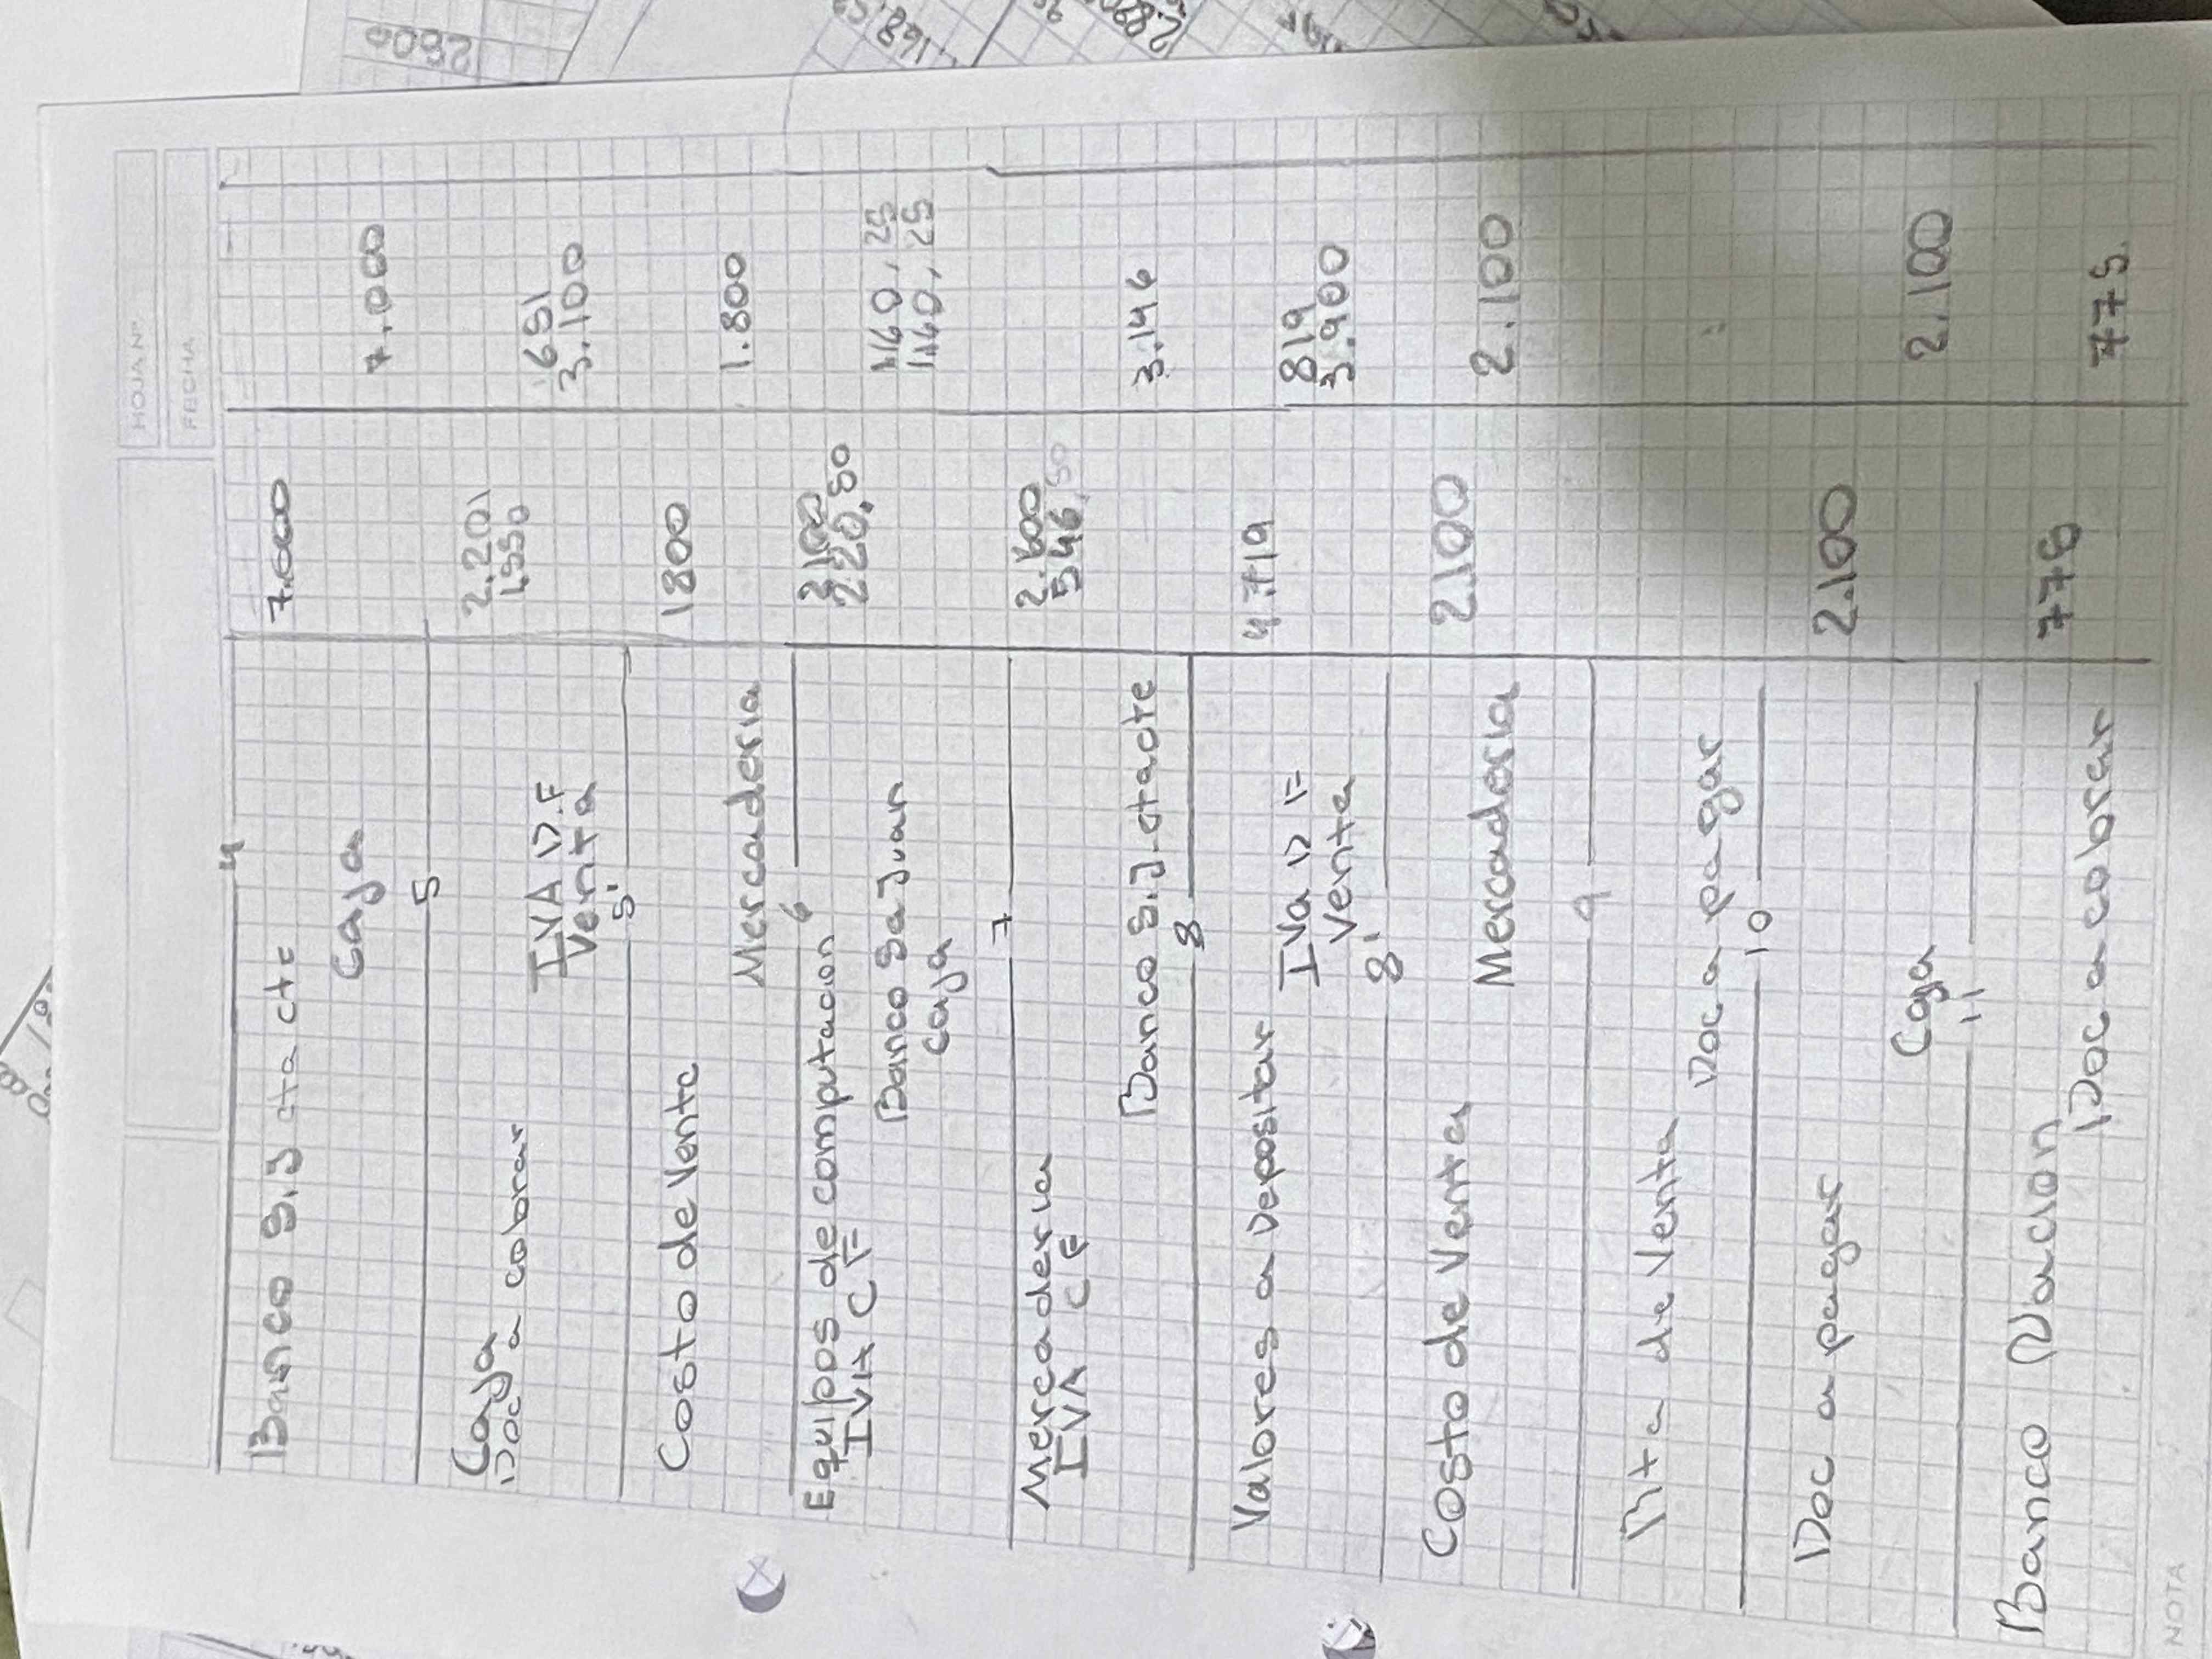 HOJA Nº
FECHA
4
Banco S.J cta cte 7.000
Caja 7.000
5
Caja 2.201
Doc a cobrar 1.550
IVA D.F 651
Venta 3.100
5'
Costo de Venta 1800
Mercaderia 1.800
6
Equipos de computacion
IVA C F 220,50
Banco Sa Juan 1160,25
Caja 1160,25
7
Mercaderia 2.600
IVA C F 546,00
Banco S.J ctacte 3.146
8
Valores a Depositar 4.719
IVA D F 819
Venta 3.900
8'
Costo de Venta 2.100
Mercaderia 2.100
9
Rta de Venta
Doc a pagar
10
Doc a pagar 2.100
Caja 2.100
11
Banco Nacion 775
Doc a cobrar 775
NOTA
2600